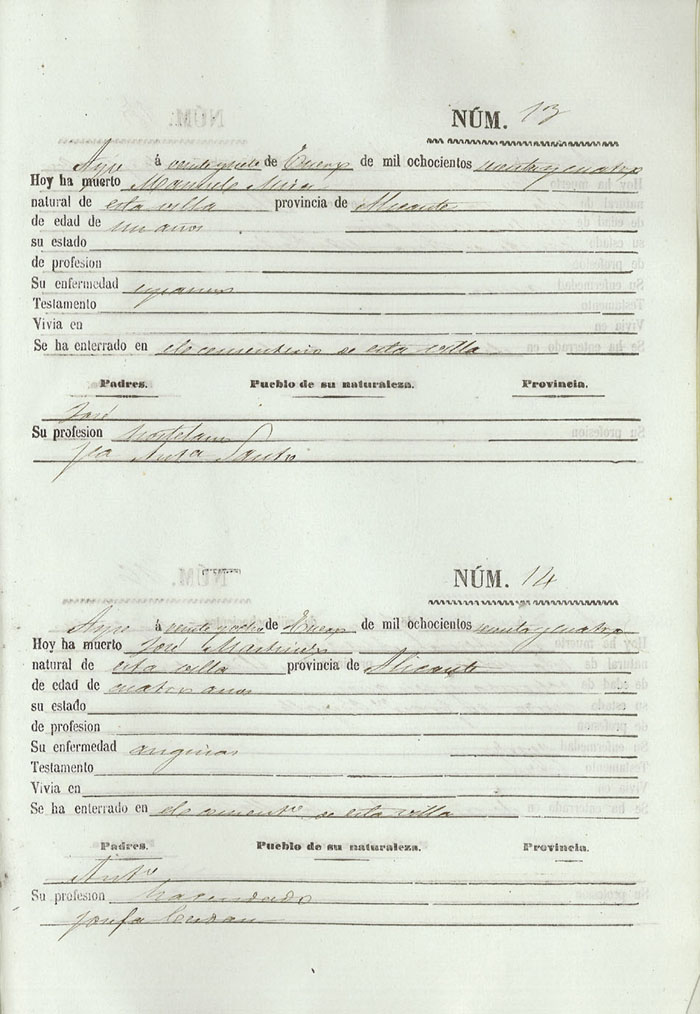 NÚM. 13
Aspe á veinte y siete de Enero de mil ochocientos sesenta y cuatro
Hoy ha muerto Manuel Mira
natural de esta villa provincia de Alicante
de edad de un años
su estado
de profesion
Su enfermedad
Testamento
Vivia en
Se ha enterrado en el cementerio de esta villa
Padres. Pueblo de su naturaleza. Provincia.
José
Su profesion hortelano
NÚM. 14
Aspe á veinte y ocho de Enero de mil ochocientos sesenta y cuatro
Hoy ha muerto José Martinez
natural de esta villa provincia de Alicante
de edad de cuatro años
su estado
de profesion
Su enfermedad anginas
Testamento
Vivia en
Se ha enterrado en el cementº de esta villa
Padres. Pueblo de su naturaleza. Provincia.
Antº
Su profesion hacendado
Josefa